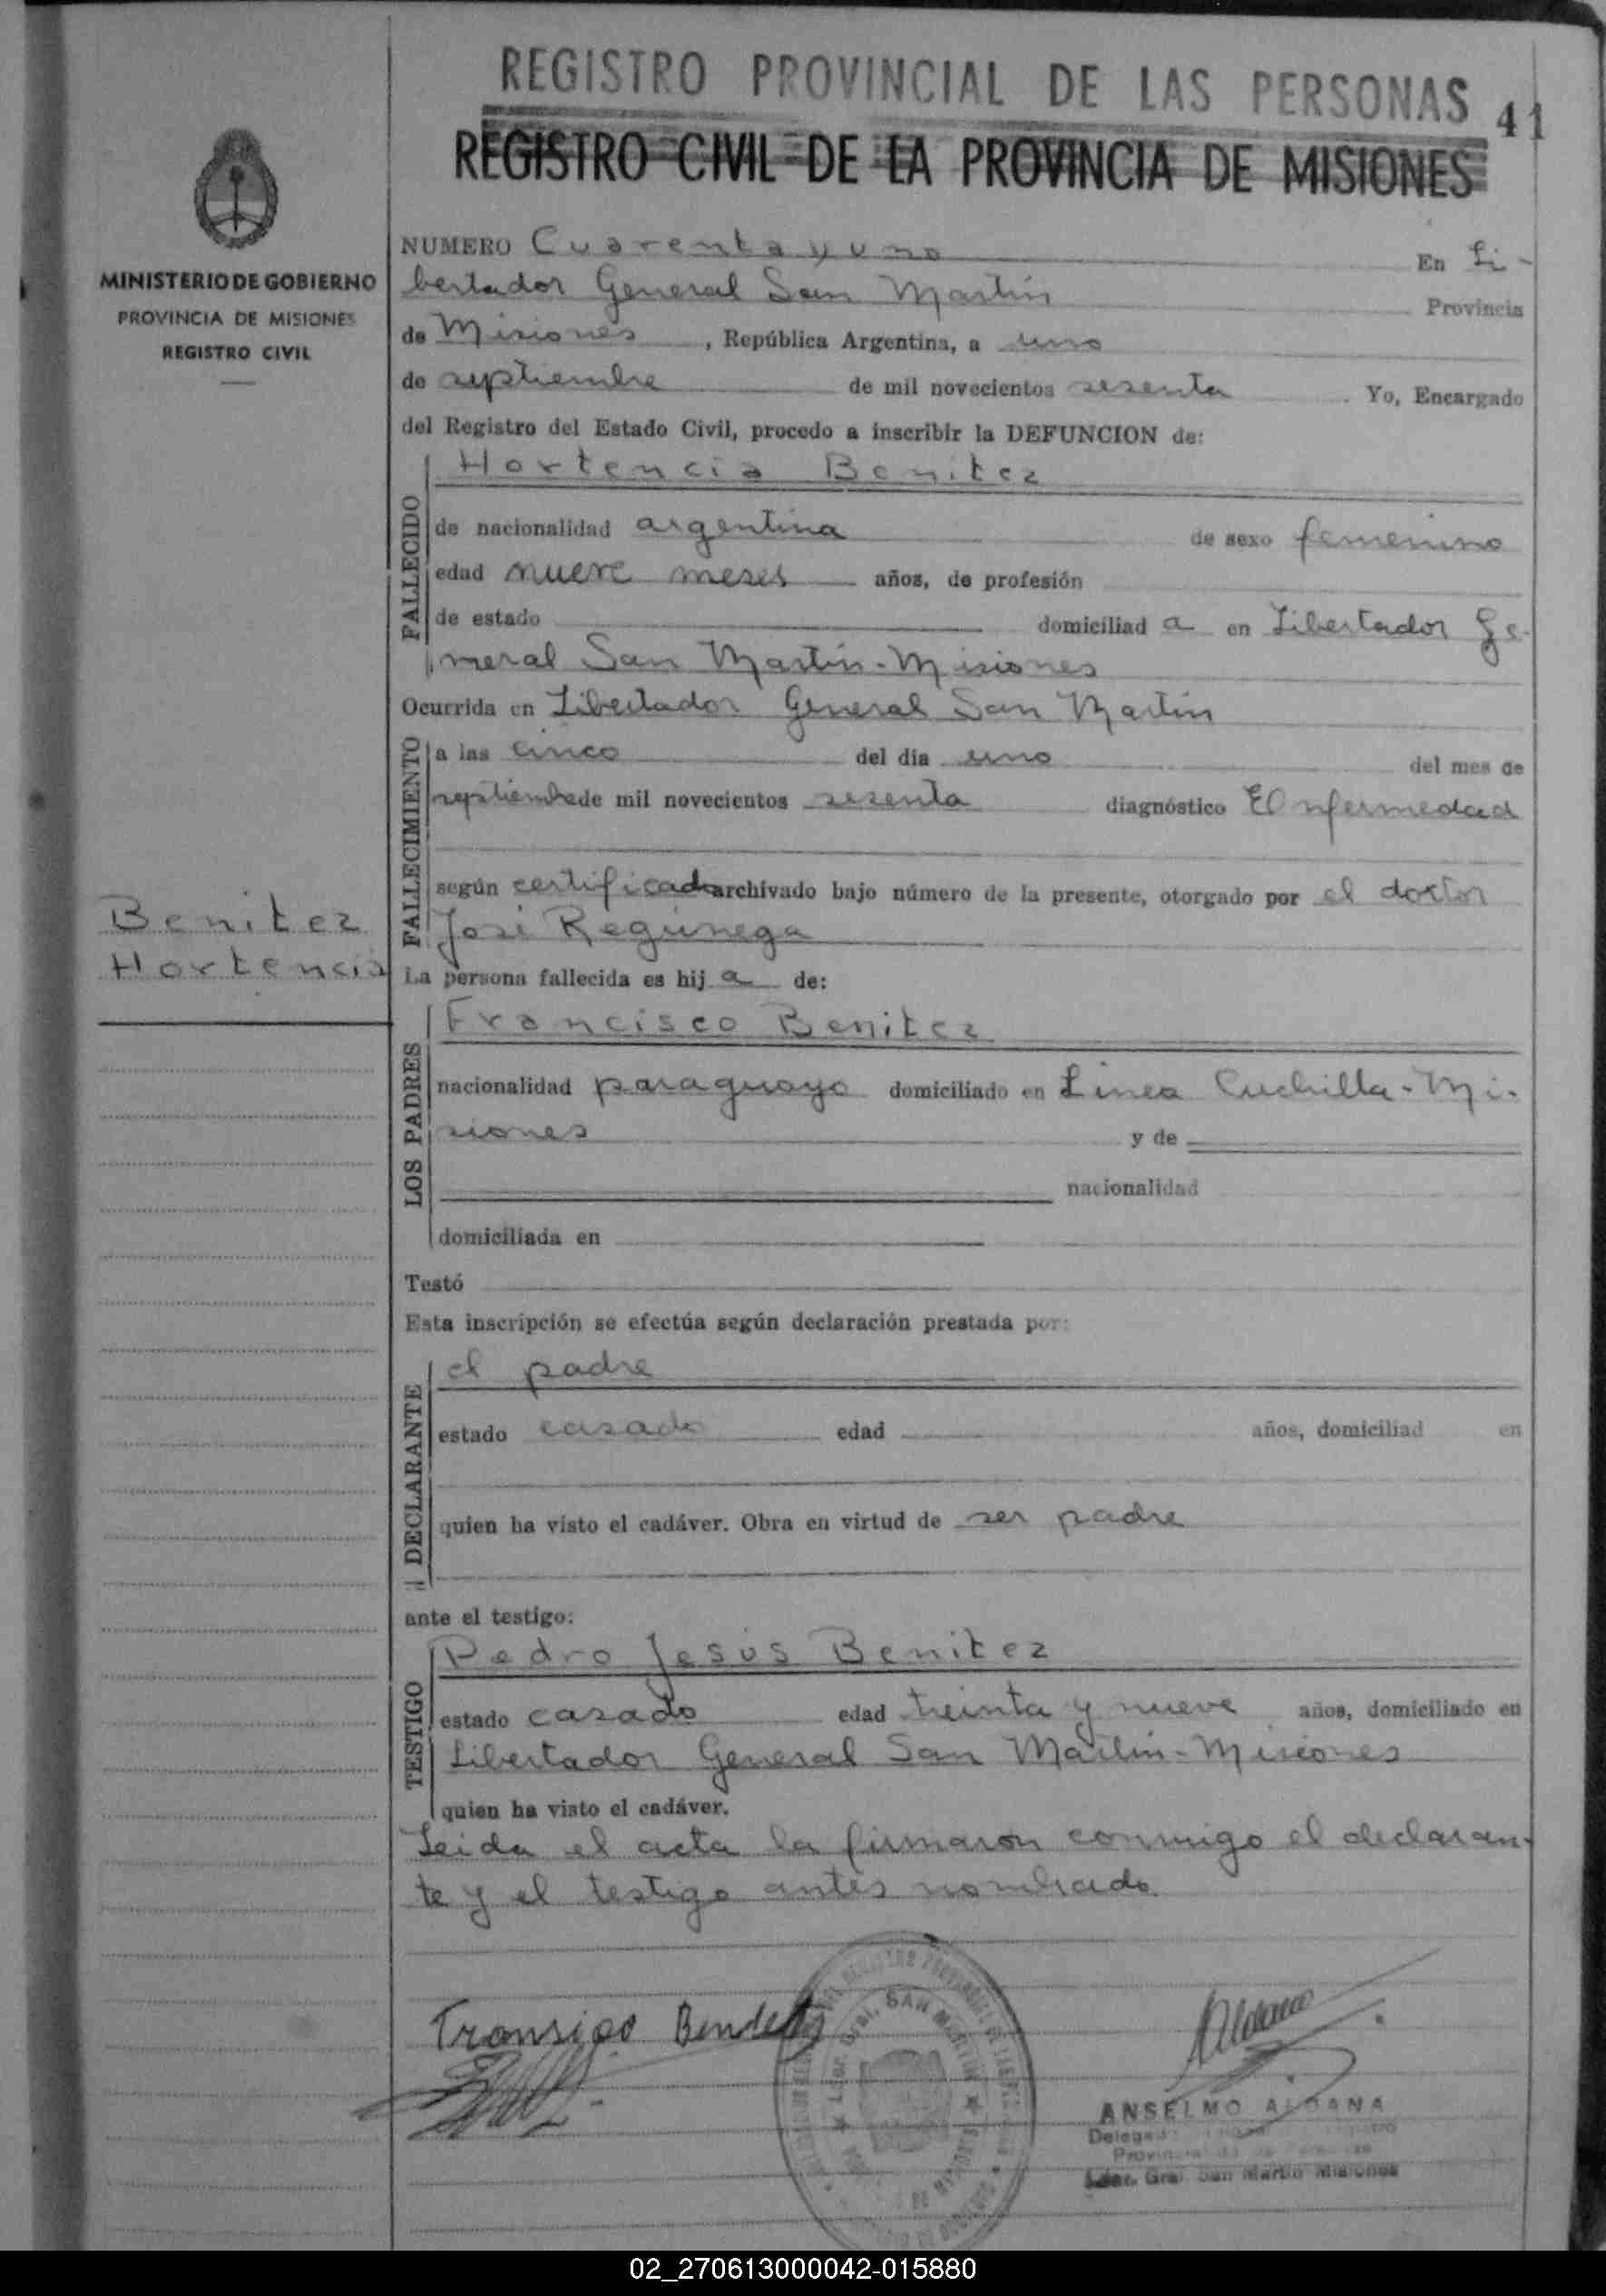 REGISTRO PROVINCIAL DE LAS PERSONAS
41
REGISTRO CIVIL DE LA PROVINCIA DE MISIONES
MINISTERIO DE GOBIERNO
PROVINCIA DE MISIONES
REGISTRO CIVIL
NUMERO Cuarenta y uno En Li-
bertador General San Martín Provincia
de Misiones, República Argentina, a uno
de septiembre de mil novecientos sesenta. Yo, Encargado
del Registro del Estado Civil, procedo a inscribir la DEFUNCION de:
FALLECIDO
Hortencia Benitez
de nacionalidad argentina de sexo femenino
edad nueve meses años, de profesión
de estado domiciliad a en Libertador Ge-
neral San Martín-Misiones
Ocurrida en Libertador General San Martín
FALLECIMIENTO
a las cinco del día uno del mes de
septiembre de mil novecientos sesenta diagnóstico Enfermedad
según certificado archivado bajo número de la presente, otorgado por el doctor
José
Benitez
Hortencia
La persona fallecida es hij a de:
LOS PADRES
Francisco Benitez
nacionalidad paraguayo domiciliado en Linea Cuchilla-Mi-
siones y de
nacionalidad
domiciliada en
Testó
Esta inscripción se efectúa según declaración prestada por:
DECLARANTE
el padre
estado casado edad años, domiciliad en
quien ha visto el cadáver. Obra en virtud de ser padre
ante el testigo:
TESTIGO
Pedro Jesús Benitez
estado casado edad treinta y nueve años, domiciliado en
Libertador General San Martín-Misiones
quien ha visto el cadáver.
Leida el acta la firmaron conmigo el declaran-
te y el testigo antes nombrado
Gral. SAN MARTIN
ANSELMO ALDANA
Lder. Gral San Martin Misiones
02_270613000042-015880